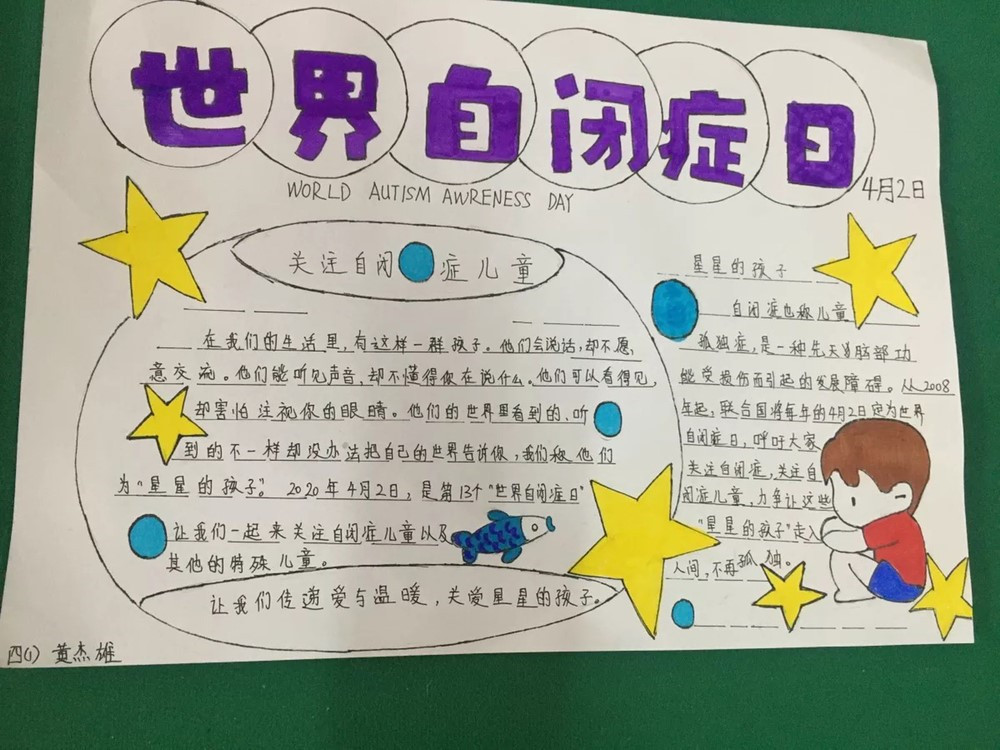 世界自闭症日
4月2日
WORLD AUTISM AWRENESS DAY
关注自闭症儿童
在我们的生活里,有这样一群孩子。他们会说话,却不愿,
意交流。他们能听见声音,却不懂得你在说什么。他们可以看得见,
却害怕注视你的眼睛。他们的世界里看到的、听
到的不一样却没办法把自己的世界告诉你,我们称他们
为“星星的孩子”。2020年4月2日,是第13个“世界自闭症日”
让我们一起来关注自闭症儿童以及
其他的特殊儿童。
让我们传递爱与温暖,关爱星星的孩子。
星星的孩子
自闭症也称儿童
孤独症,是一种先天为脑部功
能受损伤而引起的发展障碍。从2008
年起,联合国将每年的4月2日定为世界
自闭症日,呼吁大家
关注自闭症,关注自
闭症儿童,力争让这些
“星星的孩子”走入
人间,不再孤独。
四(1) 黄杰雄